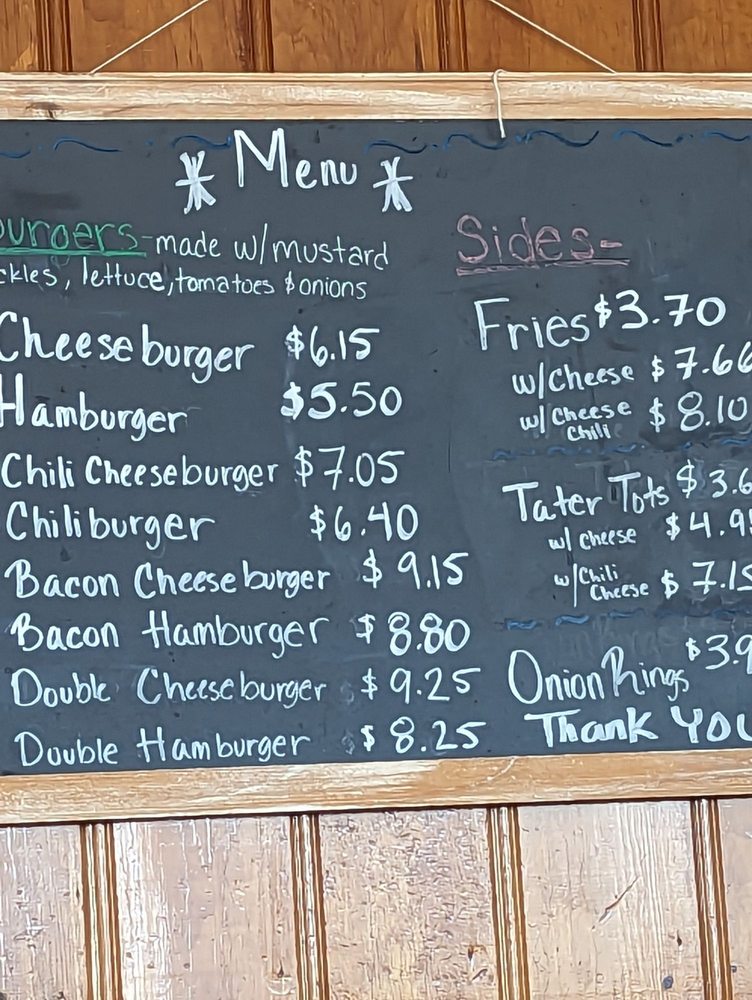 Menu
burgers-made w/mustard
ckles, lettuce, tomatoes & onions
Cheeseburger $6.15
Hamburger $5.50
Chili Cheeseburger $7.05
Chiliburger $6.40
Bacon Cheeseburger $9.15
Bacon Hamburger $8.80
Double Cheeseburger $9.25
Double Hamburger $8.25
Sides-
Fries $3.70
w/Cheese $7.66
w/Cheese $8.10
Chili
Tater Tots $3.6
w/ cheese $4.9
w/Chili
Cheese $7.15
Onion Rings $3.9
Thank YOU